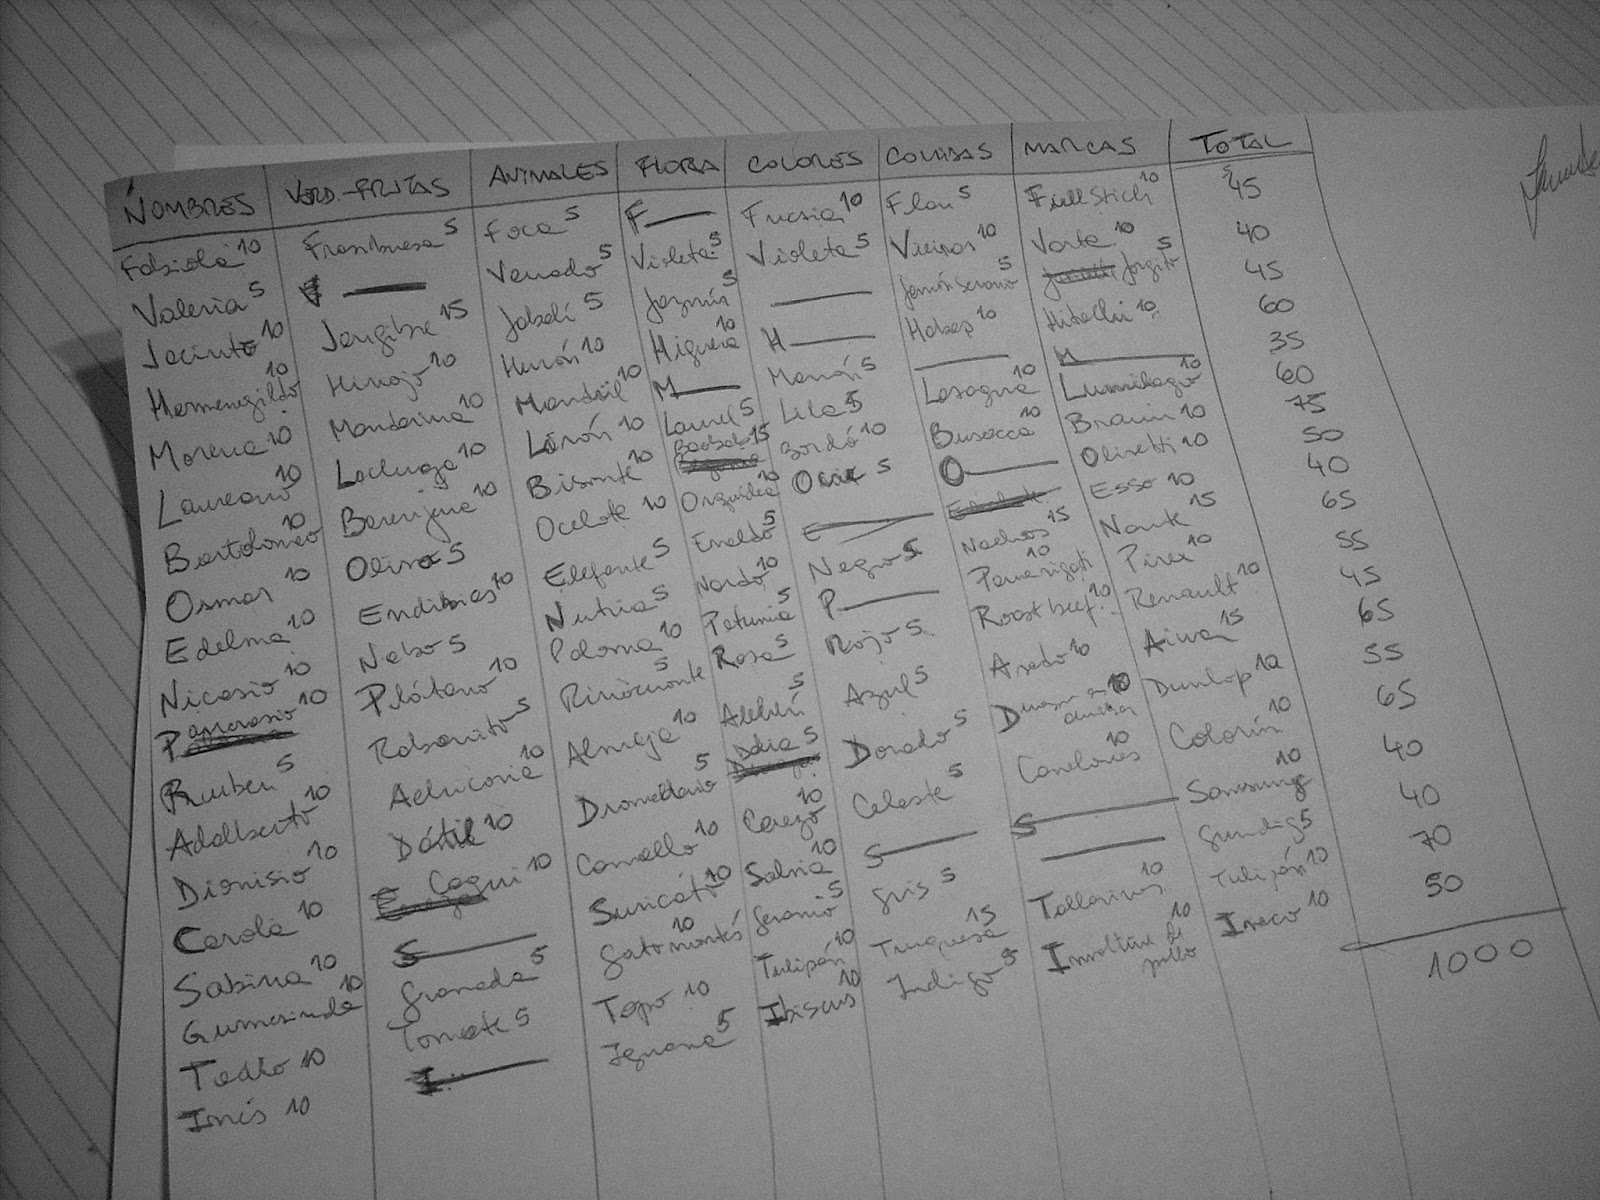 NOMBRES VERD.-FRUTAS ANIMALES FLORA COLORES COMIDAS MARCAS TOTAL
Fabiola 10 Frambuesa 5 Foca 5 F— Fucsia 10 Flan 5 FullStich 10 45
Valeria 5 — Venado 5 Violeta 5 Violeta 5 Vieiras 10 10 40
Jacinto 10 Jengibre 15 Jabalí 5 Jazmín 5 — Jamón Serrano 5 Jorgito 5 45
Hermenegildo 10 Hinojo 10 Hurón 10 Higuera 10 H— 10 Hitachi 10 60
Morena 10 Mandarina 10 Mandril 10 M— Marrón 5 — M— 35
Laureano 10 Lechuga 10 Lirón 10 Laurel 5 Lila 5 Lasagna 10 Lumilagro 10 60
Bartolomeo 10 Berenjena 10 Bisonte 10 Baobab 15 Bordó 10 Buseca 10 Braun 10 75
Osmar 10 Oliva 5 Ocelote 10 Orquídea 10 Ocre 5 O— Olivetti 10 50
Edelma 10 Endibias 10 Elefante 5 Eneldo 5 E— Esso 10 40
Nicasio 10 Nabo 5 Nutria 5 Nardo 10 Negro 5 Nachos 15 15 65
Pancrasio 10 Plátano 10 Paloma 10 Petunia 5 P— 10 Pirex 10 55
Ruben 5 Rabanito 5 Rinoceronte 5 Rosa 5 Rojo 5 Roast beef 10 Renault 10 45
Adalberto 10 Achicoria 10 Almeja 10 Alhelí 5 Azul 5 Asado 10 Aiwa 15 65
Dionisio 10 Dátil 10 Dromedario 5 Dalia 5 Dorado 5 10 Dunlop 10 55
Carola 10 Caqui 10 Camello 10 Cerezo 10 Celeste 5 Canelones 10 Colorín 10 65
Sabina 10 S— Suricato 10 Salvia 10 S— S— Samsung 10 40
Gumersinda 10 Granada 5 Gato montés 10 Geranio 5 Gris 5 — Grundig 5 40
Tadeo 10 Tomate 5 Topo 10 Tulipán 10 Turquesa 15 Tallarines 10 Tulipán 10 70
Inés 10 I— Iguana 5 Ibiscus 10 Indigo 5 de pollo 10 Iveco 10 50
1000